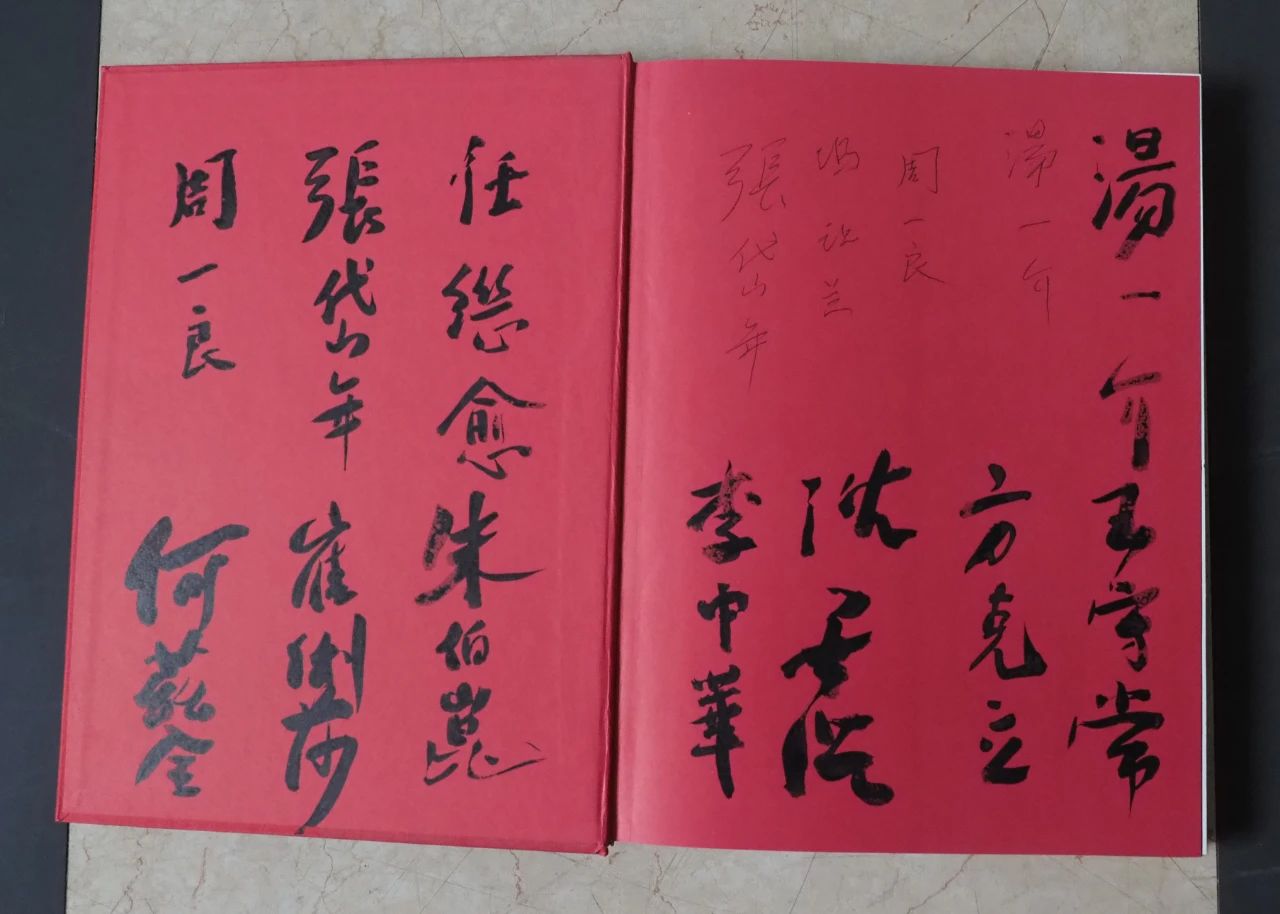 湯一介
王守常
湯一介
方克立
周一良
沈善洪
張岱年
李中華
任繼愈
朱伯崑
張岱年
崔
周一良
何茲全